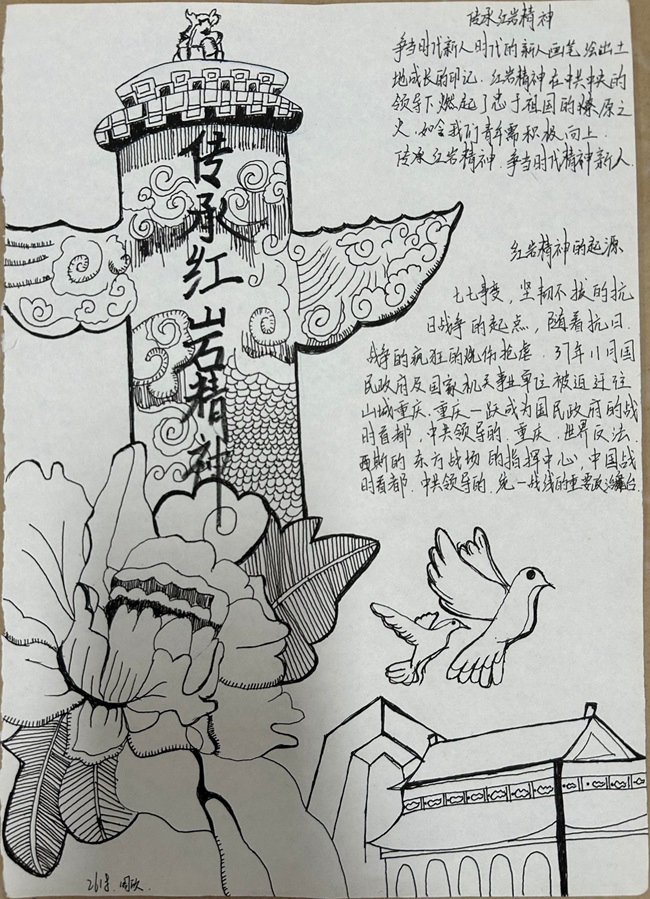 传承红岩精神
传承红岩精神
争当时代新人时代的新人画笔绘出土
地成长的印记.红岩精神在中共中央的
领导下燃起了忠于祖国的燎原之
火.如今我们青年需积极向上.
传承红岩精神.争当时代精神新人.
红岩精神的起源
七七事变，坚韧不拔的抗
日战争的起点，随着抗日.
战争的疯狂的烧伤抢虐.37年11月国
民政府及国家机关事业单位被迫迁往
山城重庆.重庆一跃成为国民政府的战
时首都.中共领导的.重庆.世界反法.
西斯的东方战场的指挥中心,中国战
时首都.中共领导的.统一战线的重要政治舞台.